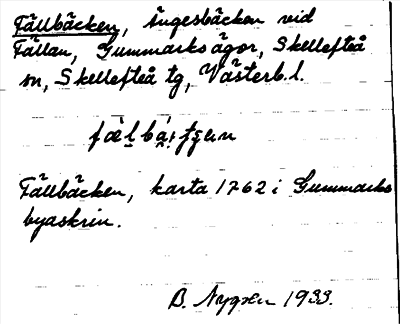 Fällbäcken, Ängesbäcken vid
Fällan, Gummarks ägor, Skellefteå
sn, Skellefteå tg, Västerb. l.
Fällbäcken, karta 1762 i Gummarks
byaskrin.
B. Nygren 1933.